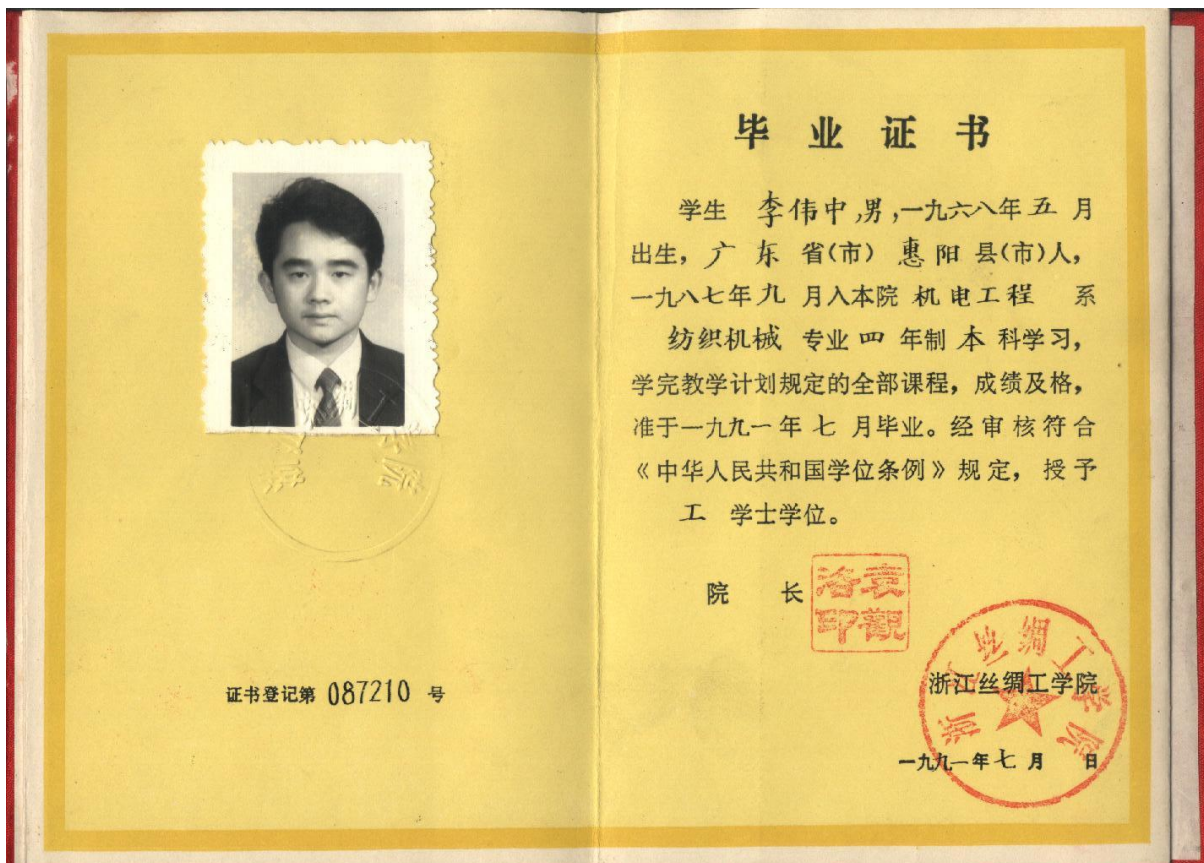 证书登记第 087210 号
毕业证书
学生 李伟中,男,一九六八年五月
出生,广东省(市)惠阳县(市)人,
一九八七年九月入本院机电工程系
纺织机械专业四年制本科学习,
学完教学计划规定的全部课程,成绩及格,
准于一九九一年七月毕业。经审核符合
《中华人民共和国学位条例》规定,授予
工 学士学位。
院长
袁觀洛印
浙江丝绸工学院
浙江丝绸工学院
一九九一年七月 日